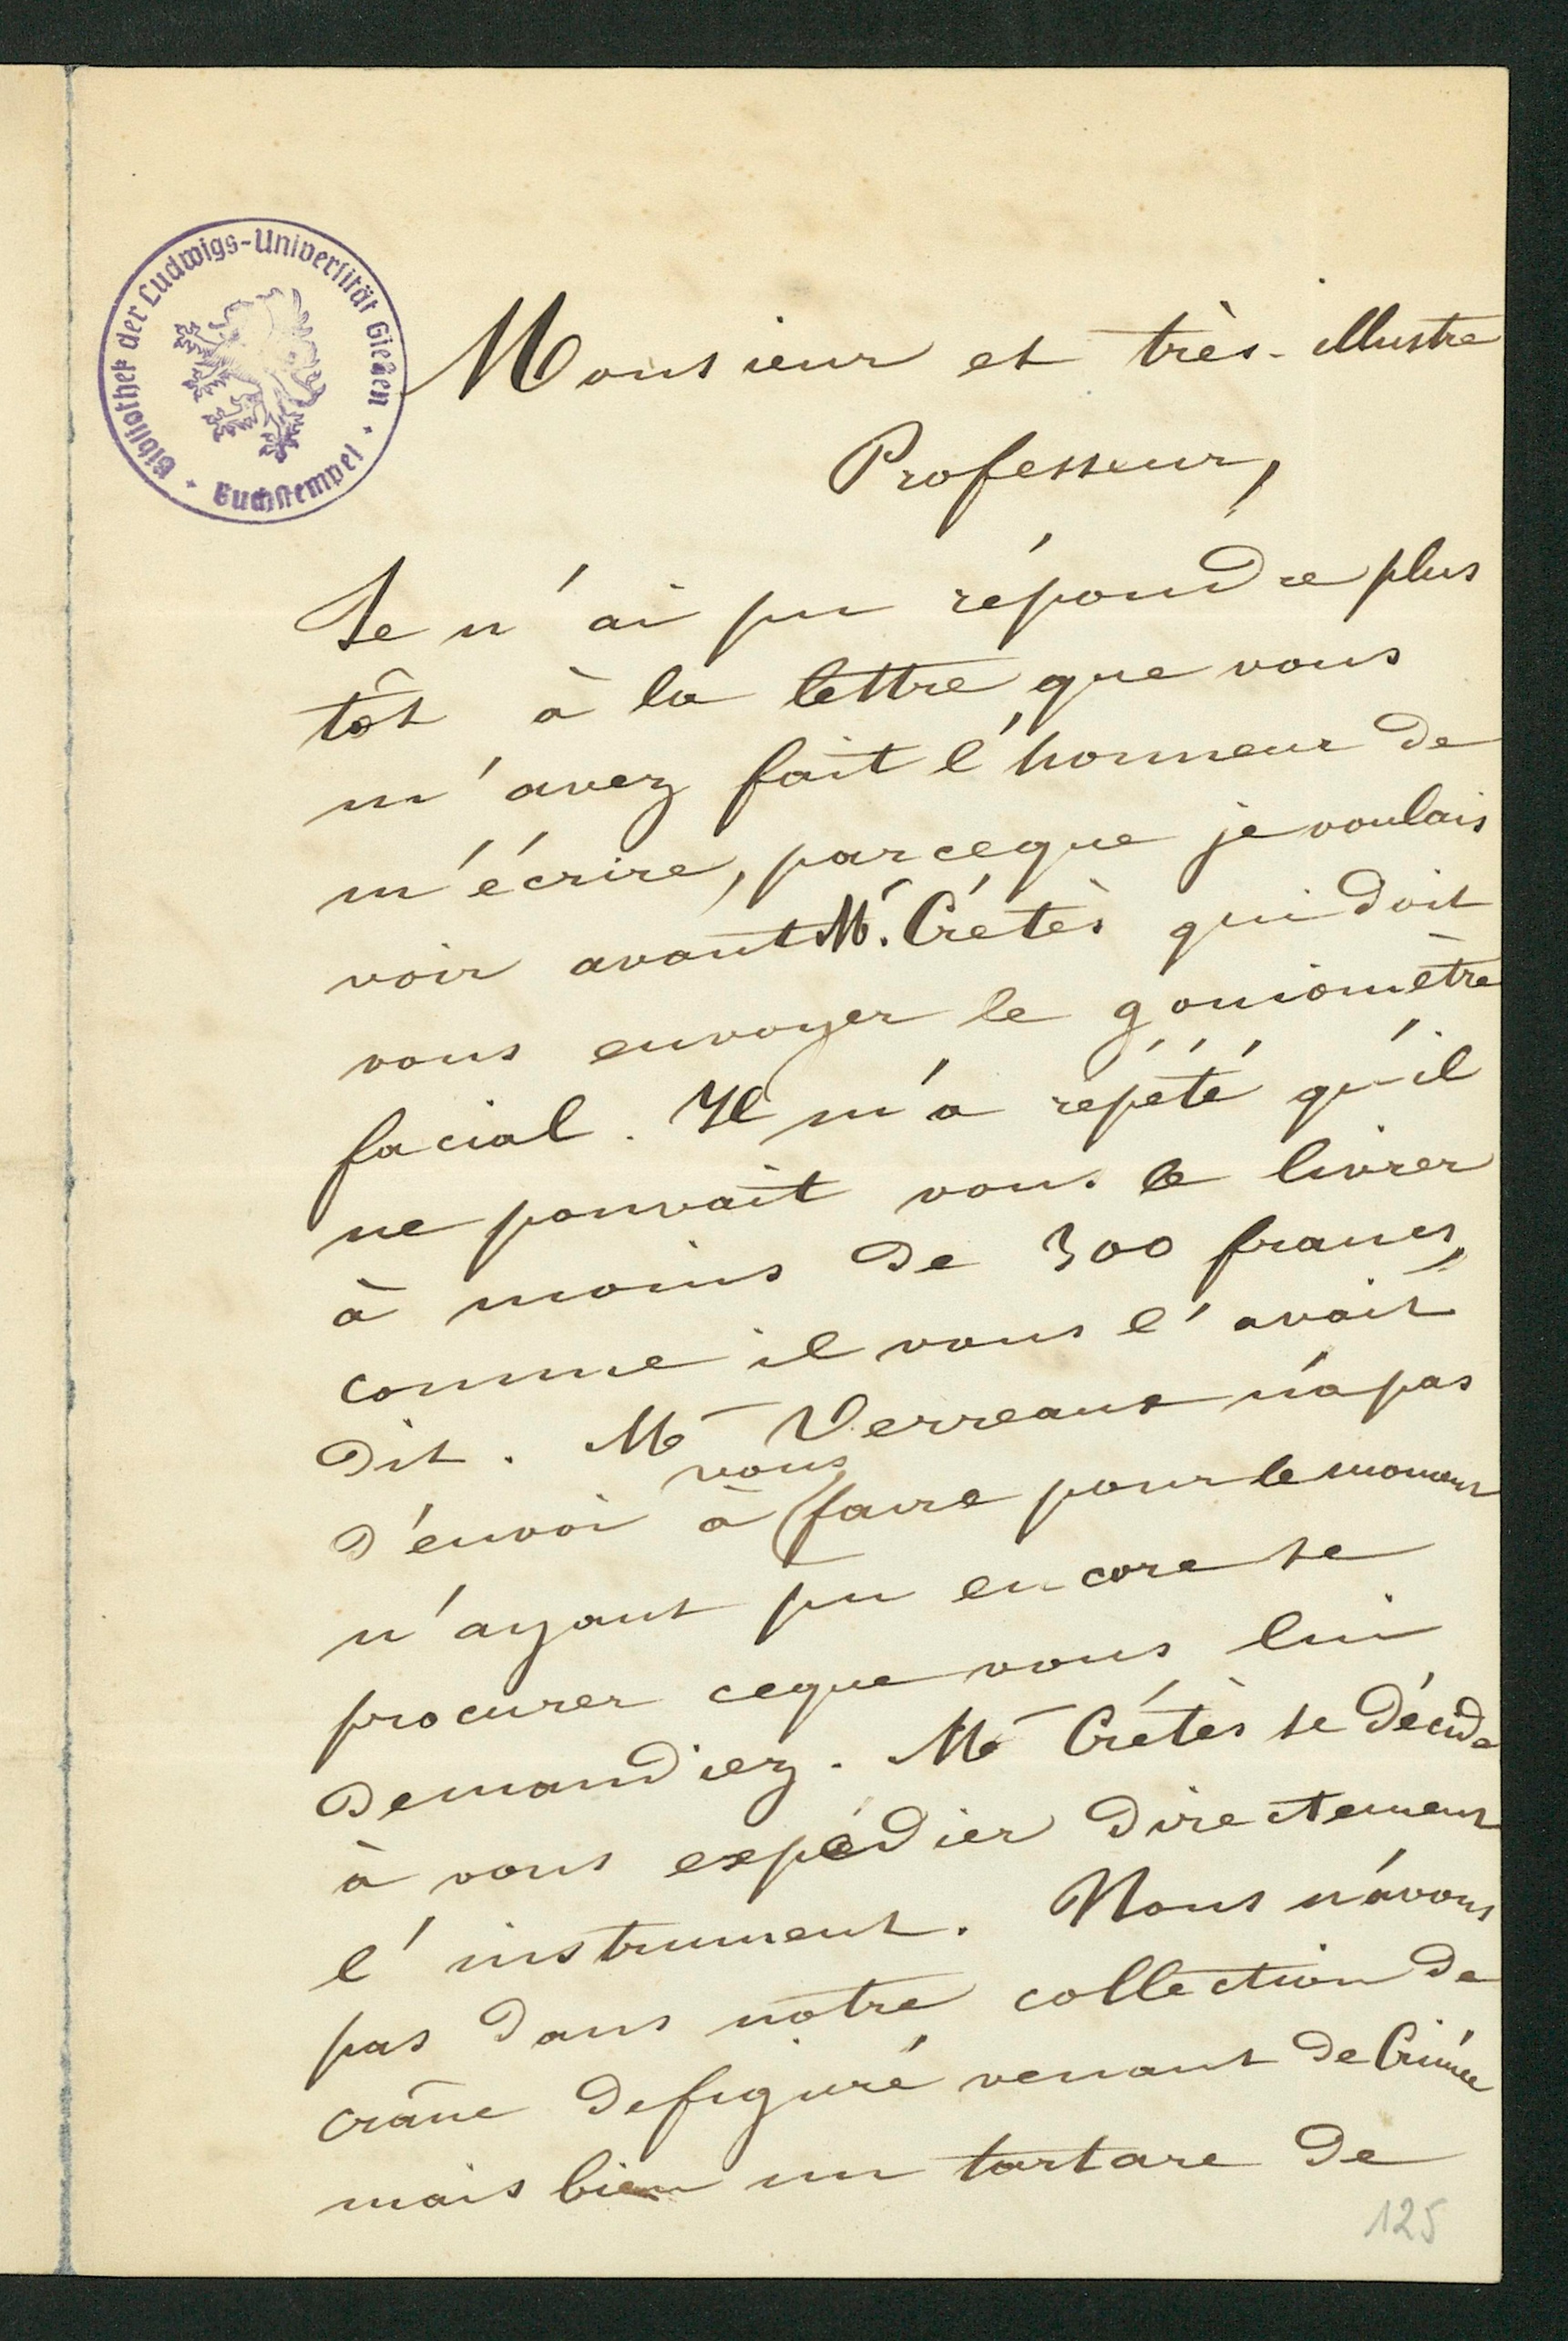 Bibliothek der Ludwigs-Universität Gießen · Buchstempel ·
Monsieur et très-illustre
Professeur,
Je n'ai pu répondre plus
tôt à la lettre que vous
m'avez fait l'honneur de
m'écrire, parceque je voulais
voir avant Mr. Crétès qui doit
vous envoyer le goniomètre
facial. Il m'a répété qu'il
ne pouvait vous le livrer
à moins de 300 francs,
comme il vous l'avait
dit. Mr Verreaux n'a pas
d'envoi à vous faire pour le moment
n'ayant pu encore se
procurer ceque vous lui
demandiez. Mr Crétès se décide
à vous expédier directement
l'instrument. Nous n'avons
pas dans notre collection de
crâne defiguré venant de Crimée
mais bien un tartare de
125